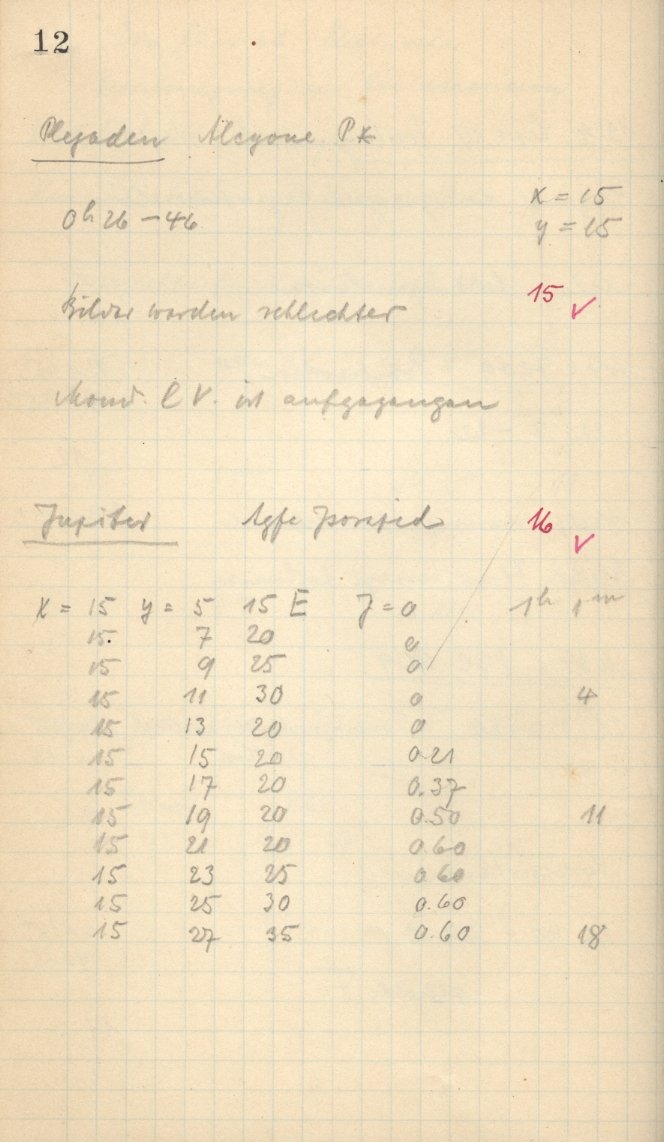 12
Plejaden Alcyone P
0h 26 – 46
x = 15
y = 15
Bilder werden schlechter
15 ✓
Mond. L V. ist aufgegangen
Jupiter Agfa
16 ✓
x = 15 y = 5 15 E J = 0 1h 1m
15 7 20 0
15 9 25 0
15 11 30 0 4
15 13 20 0
15 15 20 0.21
15 17 20 0.37
15 19 20 0.50 11
15 21 20 0.60
15 23 25 0.60
15 25 30 0.60
15 27 35 0.60 18